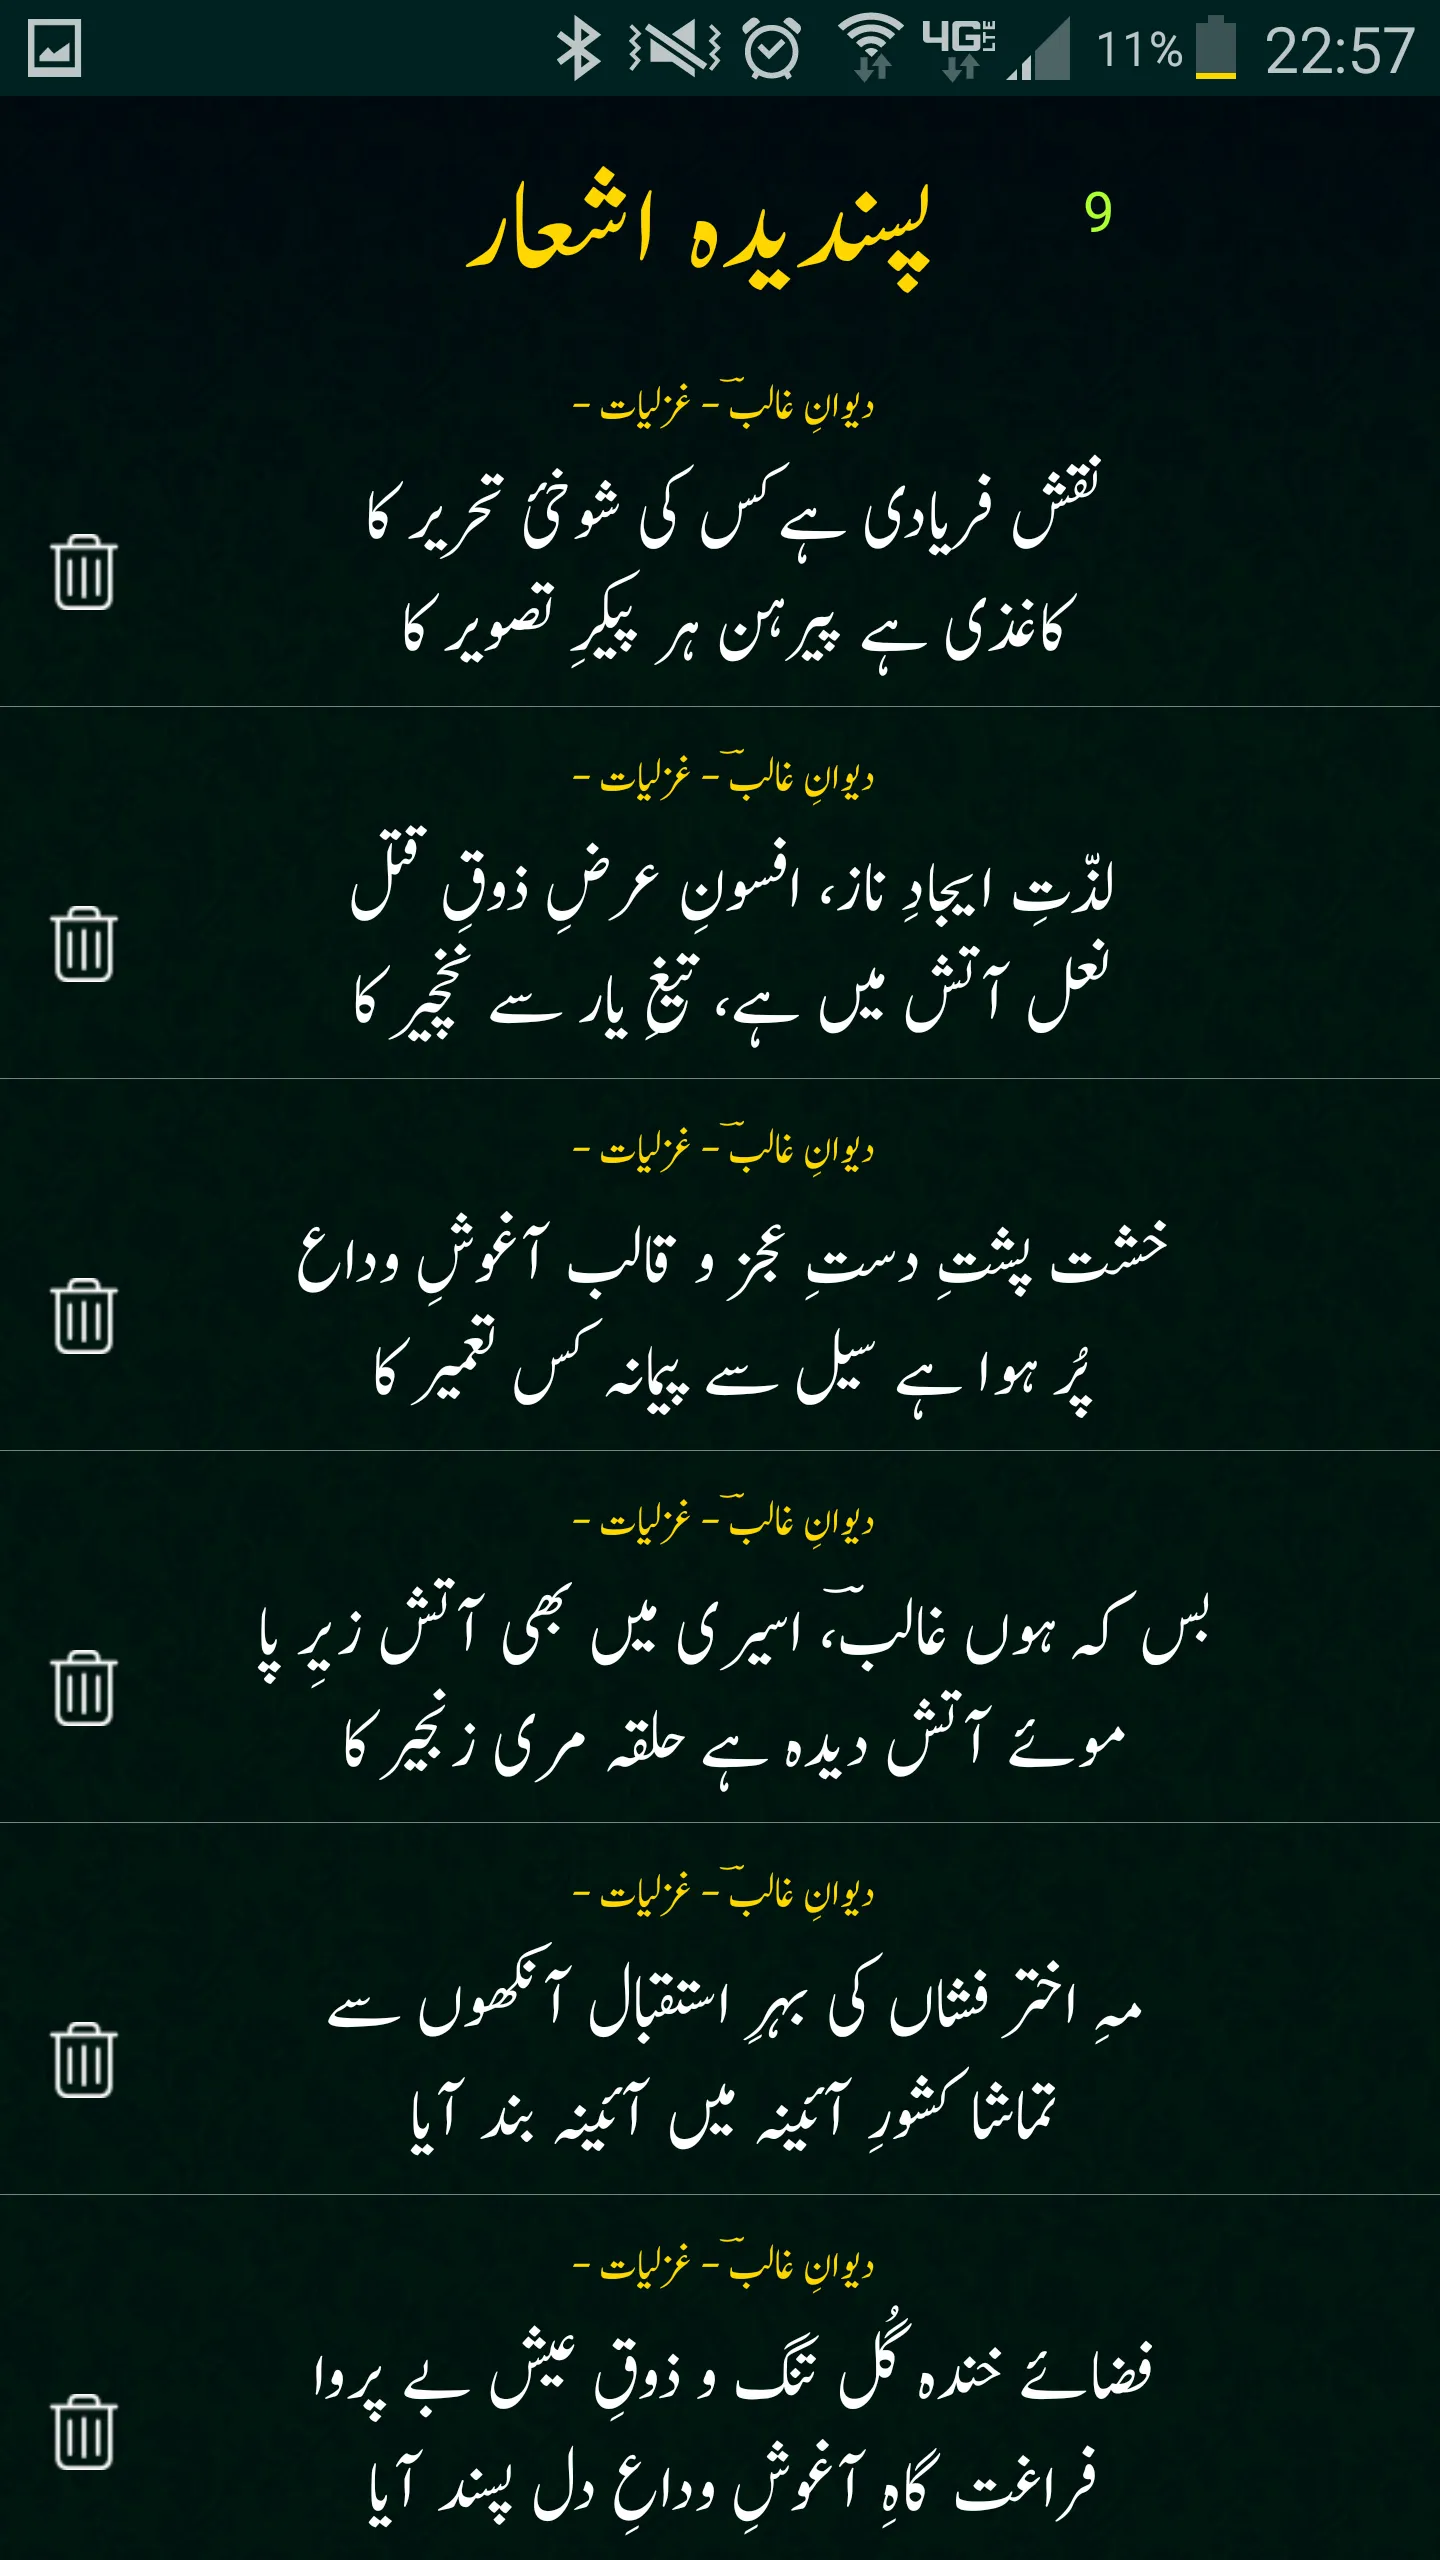 11% 22:57
4G LTE
پسندیدہ اشعار 9
دیوانِ غالبؔ - غزلیات -
نقش فریادی ہے کس کی شوخئ تحریر کا
کاغذی ہے پیرہن ہر پیکرِ تصویر کا
دیوانِ غالبؔ - غزلیات -
لذّتِ ایجادِ ناز، افسونِ عرضِ ذوقِ قتل
نعل آتش میں ہے، تیغِ یار سے نخچیر کا
دیوانِ غالبؔ - غزلیات -
خشت پشتِ دستِ عجز و قالب آغوشِ وداع
پُر ہوا ہے سیل سے پیمانہ کس تعمیر کا
دیوانِ غالبؔ - غزلیات -
بس کہ ہوں غالبؔ، اسیری میں بھی آتش زیرِ پا
موئے آتش دیدہ ہے حلقہ مری زنجیر کا
دیوانِ غالبؔ - غزلیات -
مہِ اختر فشاں کی بہرِ استقبال آنکھوں سے
تماشا کشورِ آئینہ میں آئینہ بند آیا
دیوانِ غالبؔ - غزلیات -
فضائے خندہ گُل تنگ و ذوقِ عیش بے پروا
فراغت گاہِ آغوشِ وداعِ دل پسند آیا